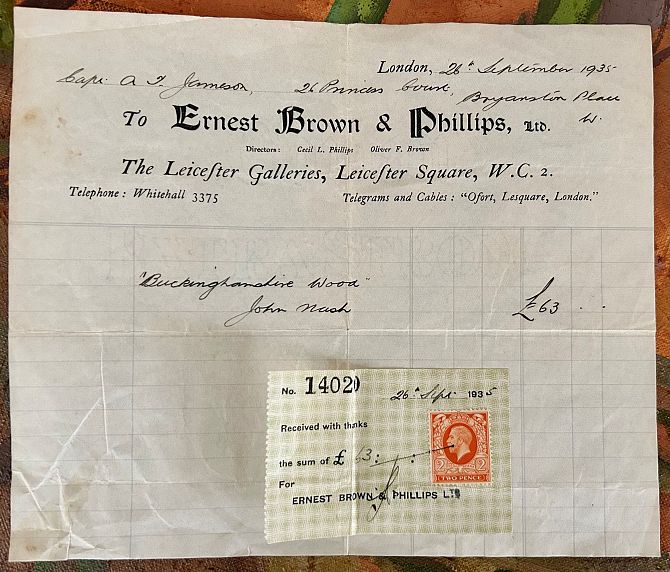 London, 26th September 1935
Capt. A. T. Jameson, 26 Princess Court,
Bryanston Place
W.
To Ernest Brown & Phillips, Ltd.
Directors: Cecil L. Phillips Oliver F. Brown
The Leicester Galleries, Leicester Square, W.C. 2.
Telephone: Whitehall 3375 Telegrams and Cables: "Ofort, Lesquare, London."
"Buckinghamshire Wood"
John Nash £63 . .
No. 14020 26th Sept. 1935
Received with thanks
the sum of £ 63: - : -
For
ERNEST BROWN & PHILLIPS LTD
2 2
TWO PENCE